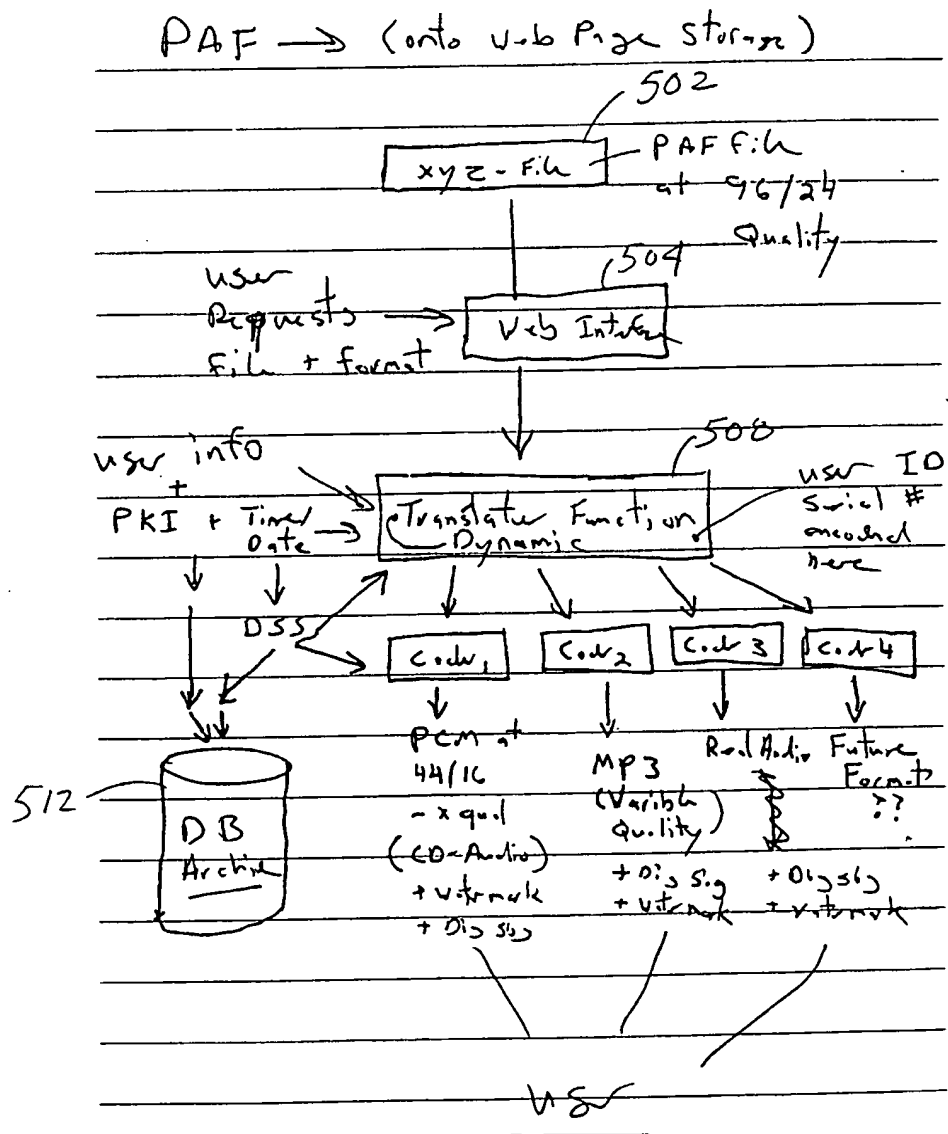 PAF → (onto Web Page Storage)
502
xyz-File
PAF File
at 96/24
Quality
504
User
Requests
File + format
Web Interface
508
user info
+
PKI + Time/
Date
Translator Function
Dynamic
user ID
Serial #
encoded
here
DSS
Coder 1
Coder 2
Coder 3
Coder 4
512
DB
Archive
PCM at
44/16
- x qual
(CD-Audio)
+ watermark
+ Dig sig
MP3
(Varible
Quality)
+ Dig Sig
+ watermark
Real Audio
+ Dig sig
+ watermark
Future
Format
??
user